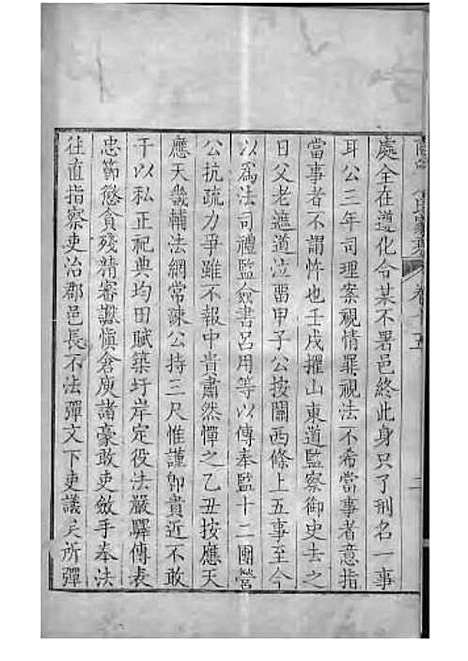 處全在遵化令某不署邑終此身只了刑名一事
耳公三年司理案視情罪視法不希當事者意指
當事者不謂忤也壬戌擢山東道監察御史去之
日父老遮道泣畱甲子公按關西條上五事至今
以為法司禮監僉書呂用等以傳奉監十二團營
公抗疏力爭雖不報中貴肅然憚之乙丑按應天
應天幾輔法網常疎公持三尺惟謹卽貴近不敢
干以私正祀典均田賦築圩岸定役法嚴驛傳表
忠節懲貪殘精審讞愼倉庾諸豪敢吏斂手奉法
往直指察吏治郡邑長不法彈文下吏議矣所彈